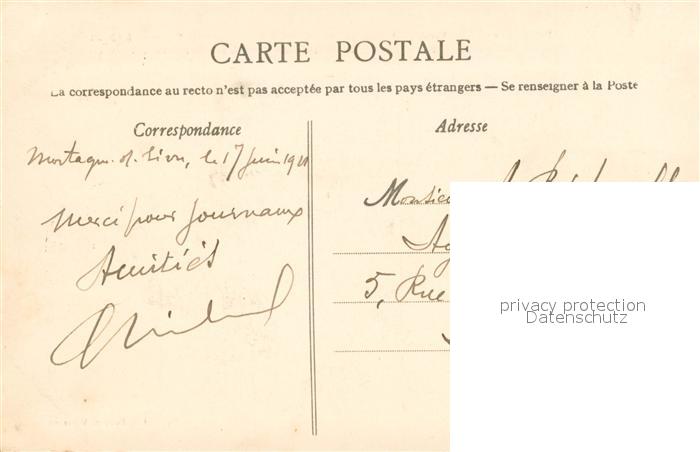 CARTE POSTALE
La correspondance au recto n'est pas acceptée par tous les pays étrangers — Se renseigner à la Poste
Correspondance
Adresse
le 17 Juin
Merci pour Journaux
Amitiés
Monsieu
5, Rue
privacy protection
Datenschutz